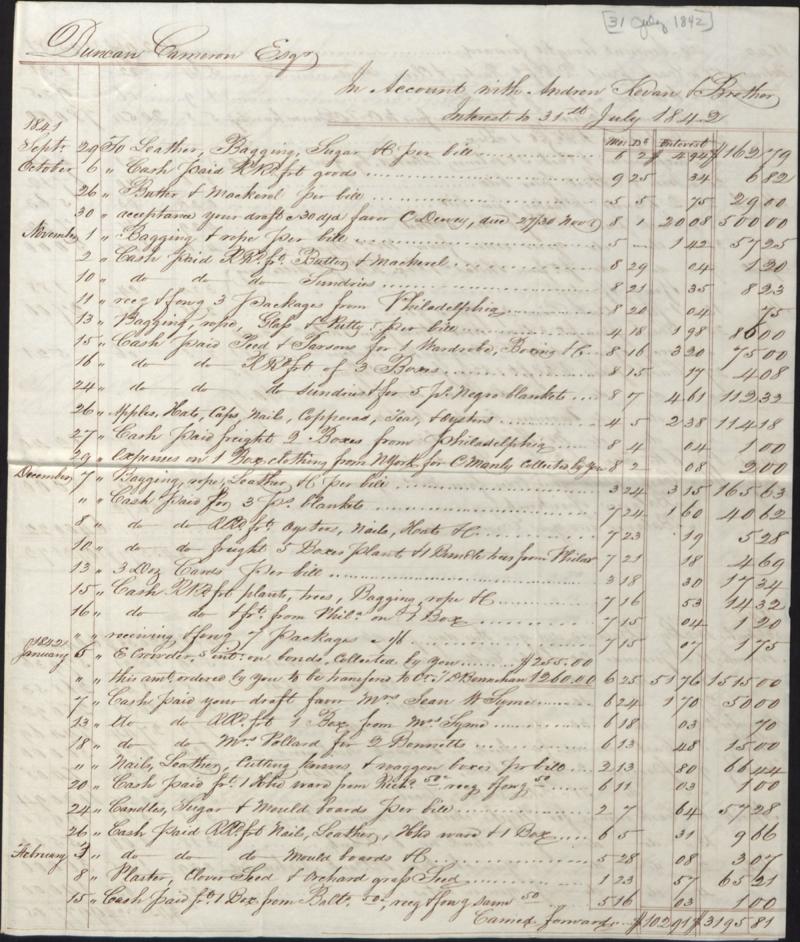 [31 July 1842]
Duncan Cameron Esqr
In Account with Andrew Kevan & Brother
Interest to 31st July 1842
1841 Mos Ds Interest
Septr. 29 To Leather, Bagging, Sugar &c per bill 6 2 $ 4 94 $ 162 79
October 6 " Cash paid RRd. frt goods 9 25 34 6 82
26 " Butter & Mackerel per bill 5 5 75 29 00
30 " acceptance your draft @ 30 d/d favor C Dewey, due 27/30 Novr 8 1 20 08 500 00
November 1 " Bagging & rope per bill 5 — 1 42 57 25
2 " Cash paid RRd. ft. Butter & Mackerel 8 29 04 1 20
10 " do do do Sundries 8 21 35 8 23
11 " recg & fowg 3 packages from Philadelphia 8 20 04 75
13 " Bagging, rope, Glass & Putty, per bill 4 18 1 98 86 00
15 " Cash paid Teed & Parsons for 1 Wardrobe, Boxing &c 8 16 3 20 75 00
16 " do do RRd frt of 3 Boxes 8 15 17 4 08
24 " do do do sundries & for 5 ps. Negro blankets 8 7 4 61 112 33
26 " Apples, Hats, Caps, Nails, Copperas, Tea, & oysters 4 5 2 38 114 18
27 " Cash paid freight 2 Boxes from Philadelphia 8 4 04 1 00
29 " expenses on 1 Box clothing from NYork for C Manly collected by you 8 2 08 2 00
December 7 " Bagging, rope, Leather &c per bill 3 24 3 15 165 63
" " Cash paid for 3 ps. blankets 7 24 1 60 40 62
8 " do do RRd. frt. Oysters, Nails, Hats &c 7 23 19 5 28
10 " do do freight 5 Boxes plants & 1 Bundle trees from Philad 7 21 18 4 69
13 " 3 Doz Cards per bill 3 18 30 17 34
15 " Cash RRd frt plants, trees, Bagging, rope &c 7 16 53 14 32
16 " do do & frt. from Phila. on 1 Box 7 15 04 1 20
" " receiving & fowg 7 packages 7 15 07 1 75
1842
January 5 " E Crowder, s int. on bonds, Collected by you $255.00
" " this amt. ordered by you to be transferd to Cr. T D Bennehan 1260.00 6 25 51 76 1515 00
7 " Cash paid your draft favor Mrs Jean W Syme 6 24 1 70 50 00
13 " do do RRd. ft 1 Box from Mrs Syme 6 18 03 70
18 " do do Mrs Pollard for 2 Bonnetts 6 13 48 15 00
" " Nails, Leather, Cutting knives & waggon boxes pr bill 2 13 80 66 44
20 " Cash paid frt. 1 Hhd ware from Richd. 50c, recg & fowg 50 6 11 03 1 00
24 " Candles, Sugar & Mould boards per bill 2 7 64 57 28
26 " Cash paid RRd frt Nails, Leather, Hhd ware & 1 Box 6 5 31 9 66
February 3 " do do do Mould boards &c 5 28 08 3 07
8 " Plaster, Clover Seed & Orchard grass Seed 1 23 57 65 21
15 " Cash paid frt. 1 Box from Balto. 50, recg & fowg same 50 5 16 03 1 00
Carried forward $102 91 $3195 81